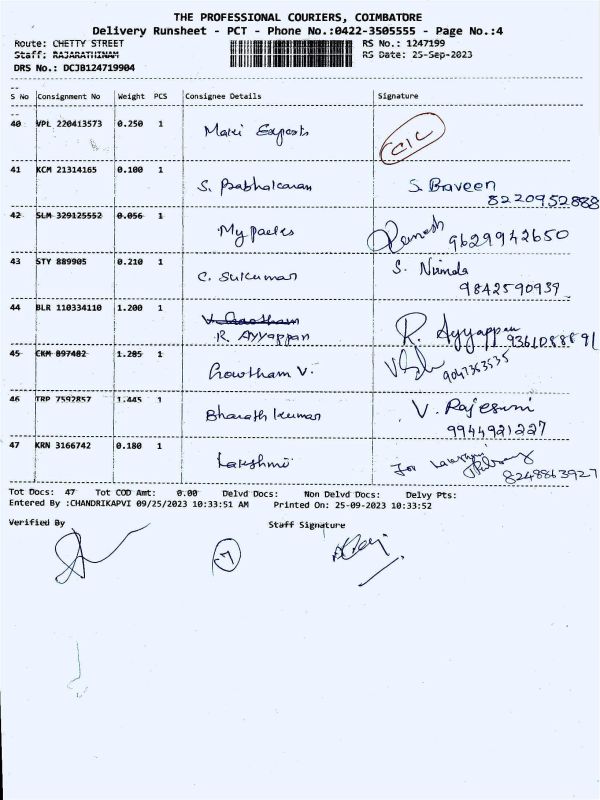 THE PROFESSIONAL COURIERS, COIMBATORE
Delivery Runsheet - PCT - Phone No.:0422-3505555 - Page No.:4
Route: CHETTY STREET RS No.: 1247199
Staff: RAJARATHINAM RS Date: 25-Sep-2023
DRS No.: DCJB124719904
S No Consignment No Weight PCS Consignee Details Signature
40 VPL 220413573 0.250 1 Maki Exports CIC
41 KCM 21314165 0.100 1 S. Prabhakaran S. Braveen
8220952888
42 SLM 329125552 0.056 1 My packs Ramesh 9629942650
43 STY 889905 0.210 1 C. Sukumar S. Nirmala
9842590939
44 BLR 110334110 1.200 1 V. Gowtham
R. Ayyappan R. Ayyappan 9361088891
45 CKM 897482 1.285 1 Gowtham V. 9047363535
46 TRP 7592857 1.445 1 Bharath kumar V. Rajeswri
9944921227
47 KRN 3166742 0.180 1 Lakshmi For Lakshmi
8248863927
Tot Docs: 47 Tot COD Amt: 0.00 Delvd Docs: Non Delvd Docs: Delvy Pts:
Entered By :CHANDRIKAPVI 09/25/2023 10:33:51 AM Printed On: 25-09-2023 10:33:52
Verified By Staff Signature
7